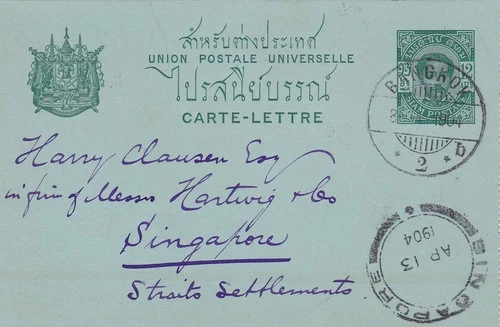 สำหรับต่างประเทศ
UNION POSTALE UNIVERSELLE
ไปรสนีย์บรรณ์
CARTE-LETTRE
12
BANGKOK
1904
2 b
Harry Clausen Esq
in firm of Messrs Hartwig & Co
Singapore
Straits Settlements.
SINGAPORE
AP 13
1904